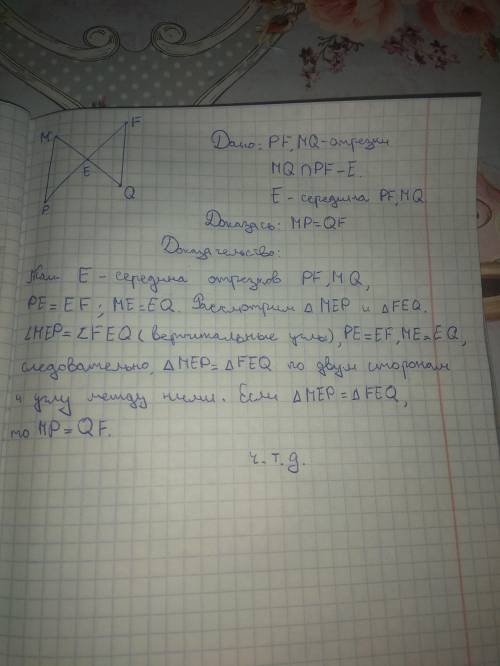 M
F
E
P
Q
Дано: PF, MQ - отрезки
MQ ∩ PF - E.
E - середина PF, MQ
Доказать: MP = QF
Доказательство:
E - середина отрезков PF, MQ,
PE = EF; ME = EQ. Рассмотрим △MEP и △FEQ.
∠MEP = ∠FEQ (вертикальные углы), PE = EF, ME = EQ,
следовательно, △MEP = △FEQ по двум сторонам
и углу между ними. Если △MEP = △FEQ,
то MP = QF.
ч.т.д.